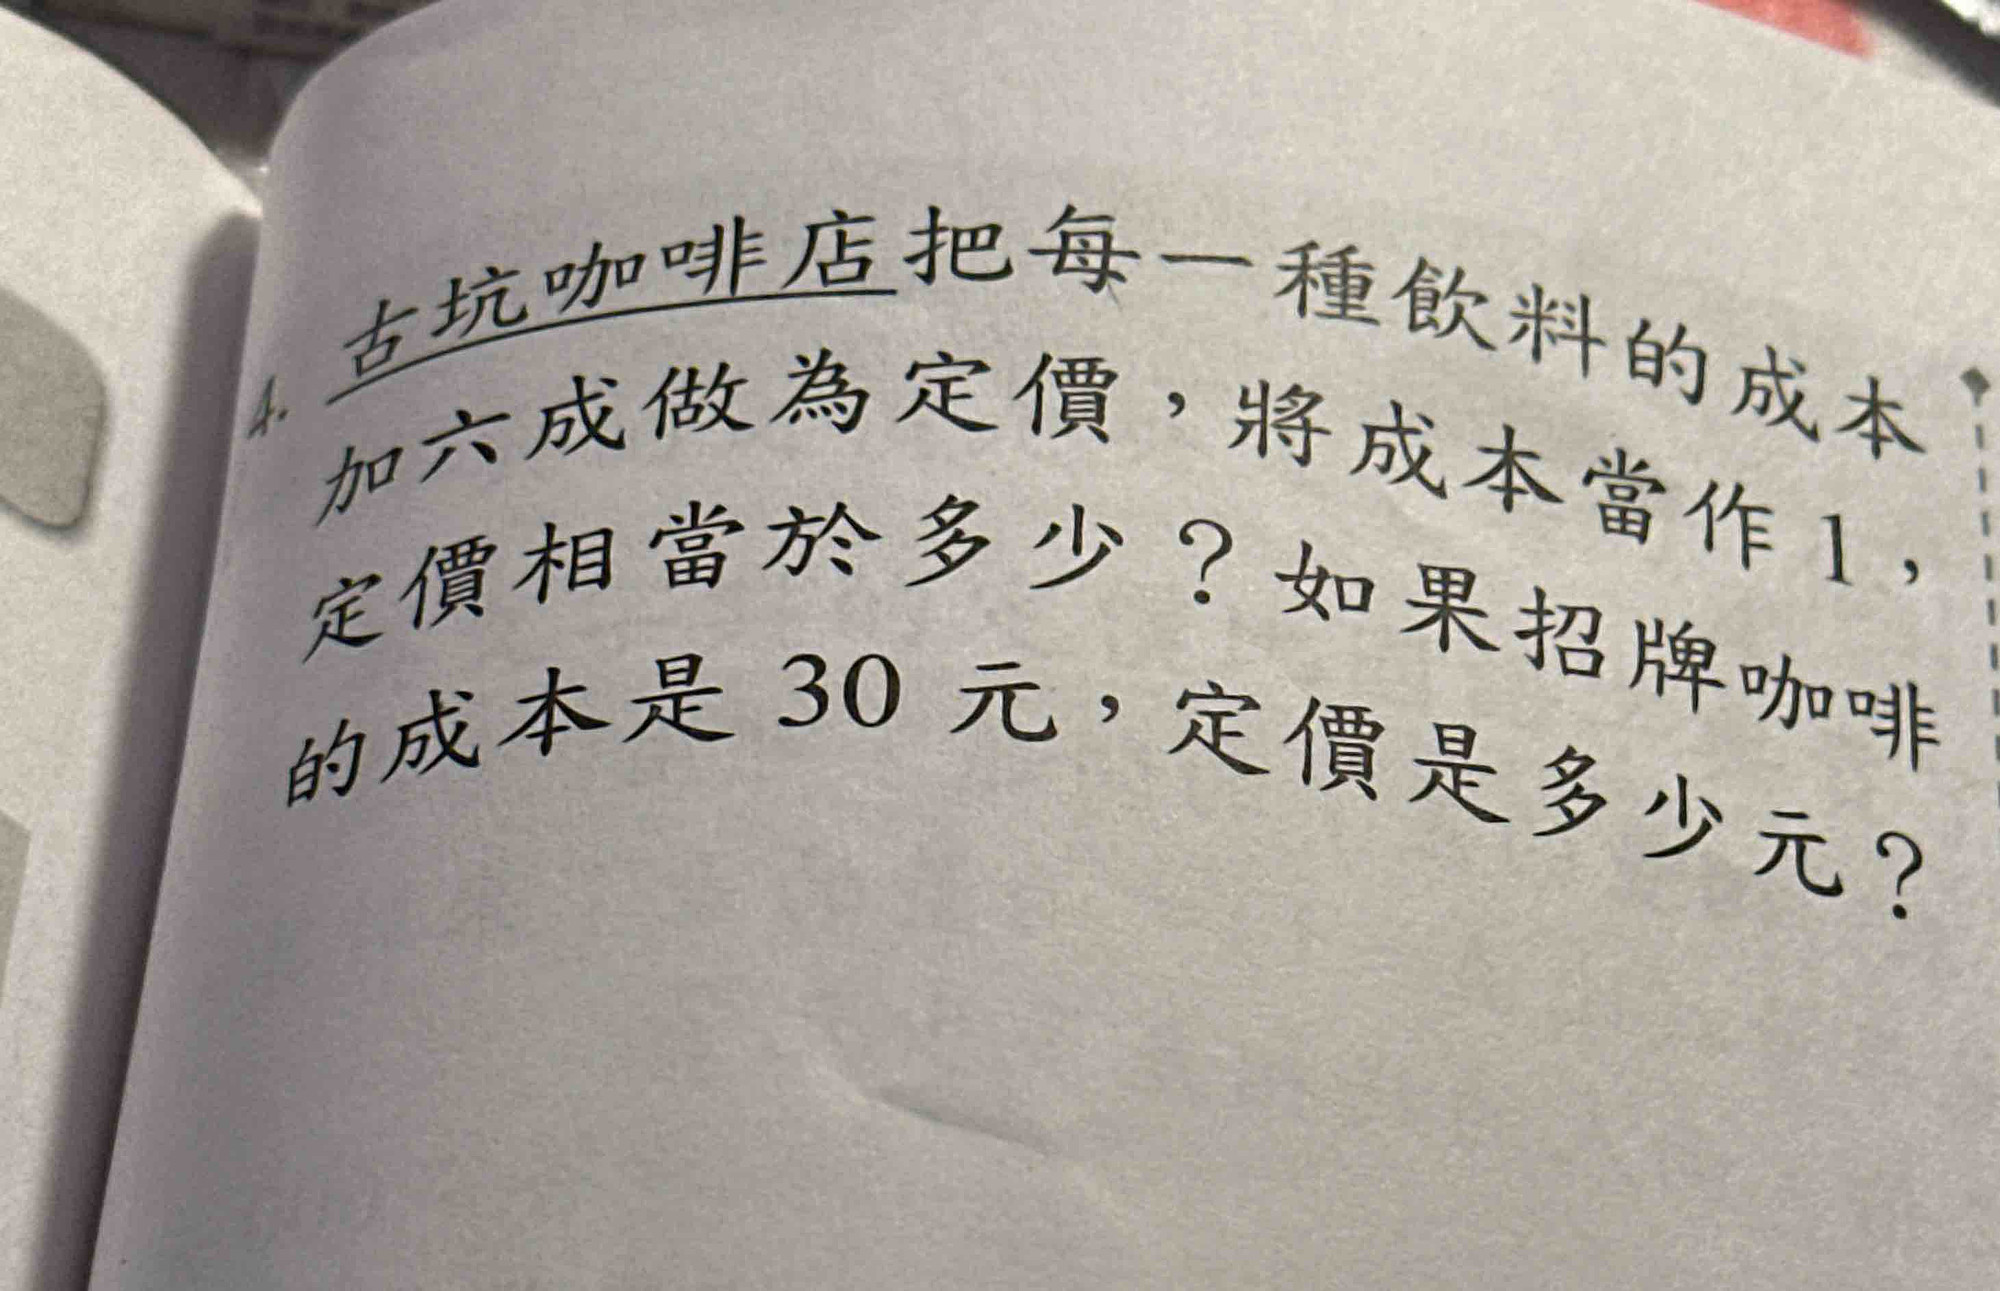 4. 古坑咖啡店把每一種飲料的成本
加六成做為定價，將成本當作1，
定價相當於多少？如果招牌咖啡
的成本是30元，定價是多少元？